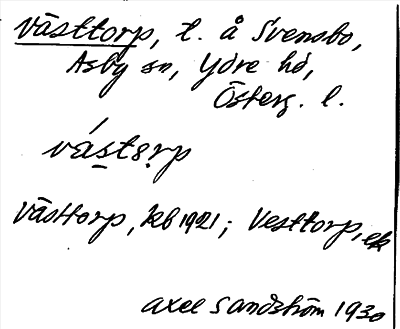 Västtorp, t. å Svensbo,
Asby sn, Ydre hd,
Österg. l.
vástsrp
Västtorp, kb 1921; Vesttorp, ek
Axel Sandström 1930